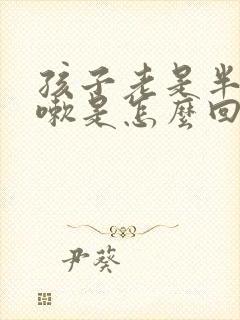 孩子老是半
嗽是怎麼回
尹葵